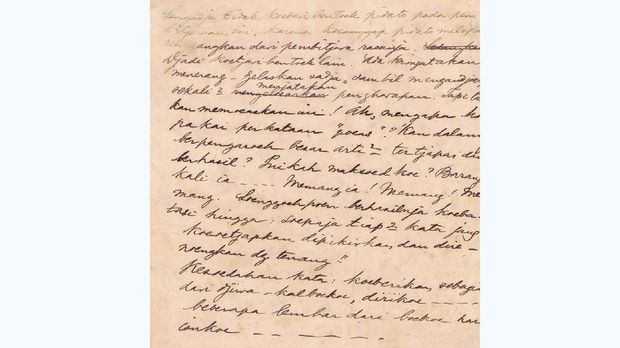 Sengadja tidak koeberi bentoek pidato pada pem
bitjaraan ini, karena koeanggap pidato
angkan dari pembitjara rasanja.
Djadi koetjari bentoek lain. Ada kenjatakan
menerang-djelaskan sadja, dan
sekali2 menjatakan pengharapan. Tapi
kan memoeaskan ini! Ah, mengapa
pakai perkataan "poeas"? Kan dalam
berpengaroeh besar arti2 tertjapai
berhasil? Inikah maksoed koe? Barang
kali ia - - - - Memang ia! Memang! Me
mang. Soenggoehpoen berhasilnja
tasi hingga, soepaja tiap2 kata jang
koeoetjapkan dipikirkan, dan dire-
noengkan dg tenang!!
Kesoedahan kata: koeberikan, sebagai
dari djiwa-kalboekoe, dirikoe - - - -
beberapa lembar dari boekoe har
iankoe - - - - -